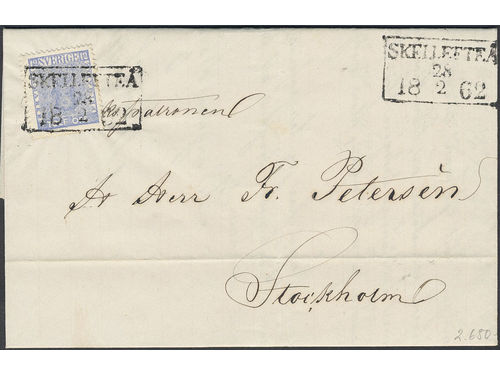 SVERIGE
SKELLEFTEÅ
28
18 2 62
SKELLEFTEÅ
28
18 2 62
Herr Fr. Petersén
Stockholm
2.680.-